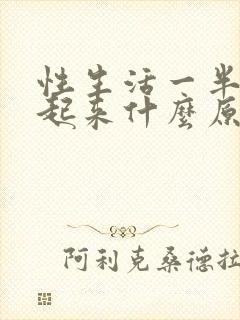 性生活一半
起来什麼原
阿利克桑德拉